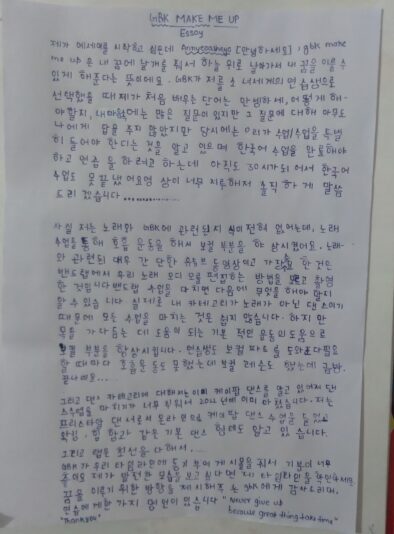 GBK MAKE ME UP
Essay
제가 에세이를 시작하고 싶은데 Annyeonghaseyo [안녕하세요], gbk make
me up 은 내 꿈에 날개를 줘서 하늘 위로 날아가서 내 꿈을 이룰 수
있게 해준다는 뜻이에요. GBK가 저를 소녀세계의 연습생으로
선택했을 때 제가 처음 배우는 단어는 안녕하세, 어떻게 해
야할지, 내 마음에는 많은 질문이 있지만 그 질문에 대해 아무도
나에게 답을 주지 않았지만 당시에는 우리가 수업 수업을 특별
히 들어야 한다는 것을 알고 있으며 한국어 수업을 완료해야
하고 연습을 하려고 하는데 아직도 30시가 되어서 한국어
수업도 못 끝냈어요 영상이 너무 지루해져 솔직하게 말씀
드리겠습니다..............
사실 저는 노래와 GBK에 관련되지 전혀 없어는데, 노래
수업을 통해 호흡 운동을 해서 보컬 부분을 향상시켰어요. 노래
와 관련된 매우 간단한 유튜브 동영상이고 가장 한 것은
밴드랩에서 우리 노래 오디오를 편집하는 방법을 모르고 촬영
한 것입니다 밴드랩 수업을 마치면 다음에 무엇을 해야 할지
할 수 있습니다 실제로 내 카테고리가 노래가 아닌 댄스이기
때문에 모든 수업을 마치는 것은 쉽지 않습니다. 하지만
목을 가다듬는 데 도움이 되는 기본적인 운동의 도움으로
보컬 부분을 향상시킵니다. 연습생도 보컬 파트를 도와
할 때마다 호흡을 도 못했는데 보컬 레슨도 했는데 금방
끝나네요...
그리고 댄스 카테고리에 대해서는 이미 케이팝 댄스를 알고 있어서 댄
스수업을 마치기가 너무 쉬워서 2022년에 이미 마쳤습니다. 저는
프리스타일 댄서로서 온라인으로 케이팝 댄스 수업을 들었고
왁킹, 힙합과 같은 기본 댄스 형태도 알고 있습니다.
그리고 랩은 최선을 다해서...
GBK가 우리 타임라인에 동기부여 게시물을 줘서 기분이 너무
좋아요 제가 발전한 모습을 보고 싶다면 제 타임라인을 확인하세요
꿈을 이루기 위한 방향을 제시해주는 gbk에게 감사드리며,
연습에 관한 가지 명언이 있습니다 "Never give up
"Thankyou" because great thing take time"